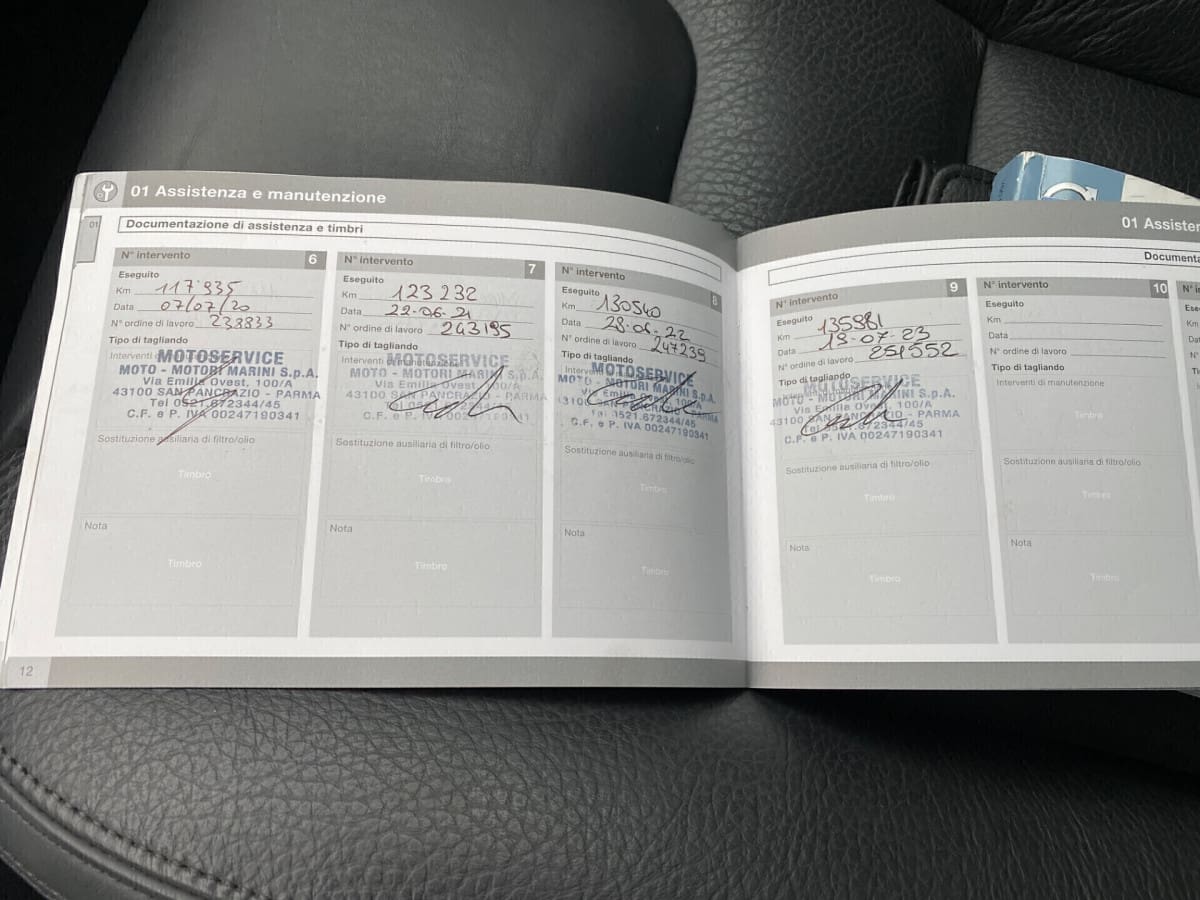 01 Assistenza e manutenzione
01
Documentazione di assistenza e timbri
N° intervento 6
Eseguito
Km 117'935
Data 07/07/20
N° ordine di lavoro 233833
Tipo di tagliando
Interventi
MOTOSERVICE
MOTO - MOTORI MARINI S.p.A.
Via Emilia Ovest, 100/A
43100 SAN PANCRAZIO - PARMA
Tel 0521.672344/45
C.F. e P. IVA 00247190341
Sostituzione ausiliaria di filtro/olio
Timbro
Nota
Timbro
12
N° intervento 7
Eseguito
Km 123 232
Data 22-06-21
N° ordine di lavoro 243195
Tipo di tagliando
Interventi di manutenzione
MOTOSERVICE
MOTO - MOTORI MARINI S.p.A.
Via Emilia Ovest, 100/A
43100 SAN PANCRAZIO - PARMA
C.F. e P. IVA 00247190341
Sostituzione ausiliaria di filtro/olio
Timbro
Nota
Timbro
N° intervento 8
Eseguito
Km 130540
Data 28-06-22
N° ordine di lavoro 247239
Tipo di tagliando
MOTOSERVICE
MOTO - MOTORI MARINI S.p.A.
43100 PARMA
Tel 0521.672344/45
C.F. e P. IVA 00247190341
Sostituzione ausiliaria di filtro/olio
Timbro
Nota
Timbro
01 Assisten
Documenta
N° intervento 9
Eseguito
Km 135981
Data 18-07-23
N° ordine di lavoro 251552
Tipo di tagliando
MOTOSERVICE
MOTO - MOTORI MARINI S.p.A.
Via Emilia Ovest, 100/A
43100 SAN PANCRAZIO - PARMA
Tel 0521.672344/45
C.F. e P. IVA 00247190341
Sostituzione ausiliaria di filtro/olio
Timbro
Nota
Timbro
N° intervento 10
Eseguito
Km
Data
N° ordine di lavoro
Tipo di tagliando
Interventi di manutenzione
Timbro
Sostituzione ausiliaria di filtro/olio
Timbro
Nota
Timbro